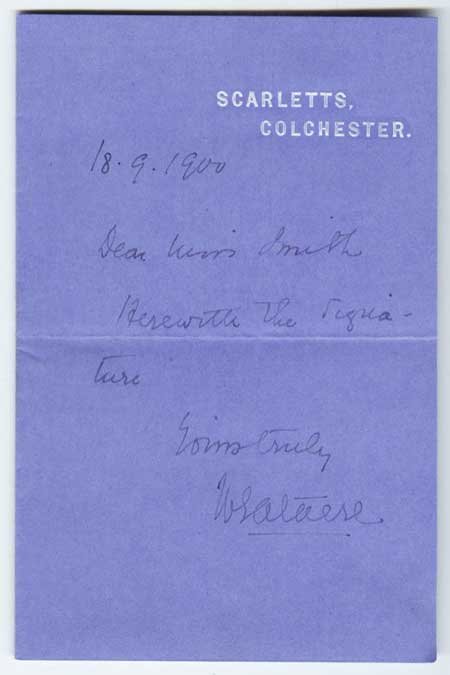 SCARLETTS,
COLCHESTER.
18.9.1900
Dear Miss Smith
Herewith the signa-
ture
Yours truly